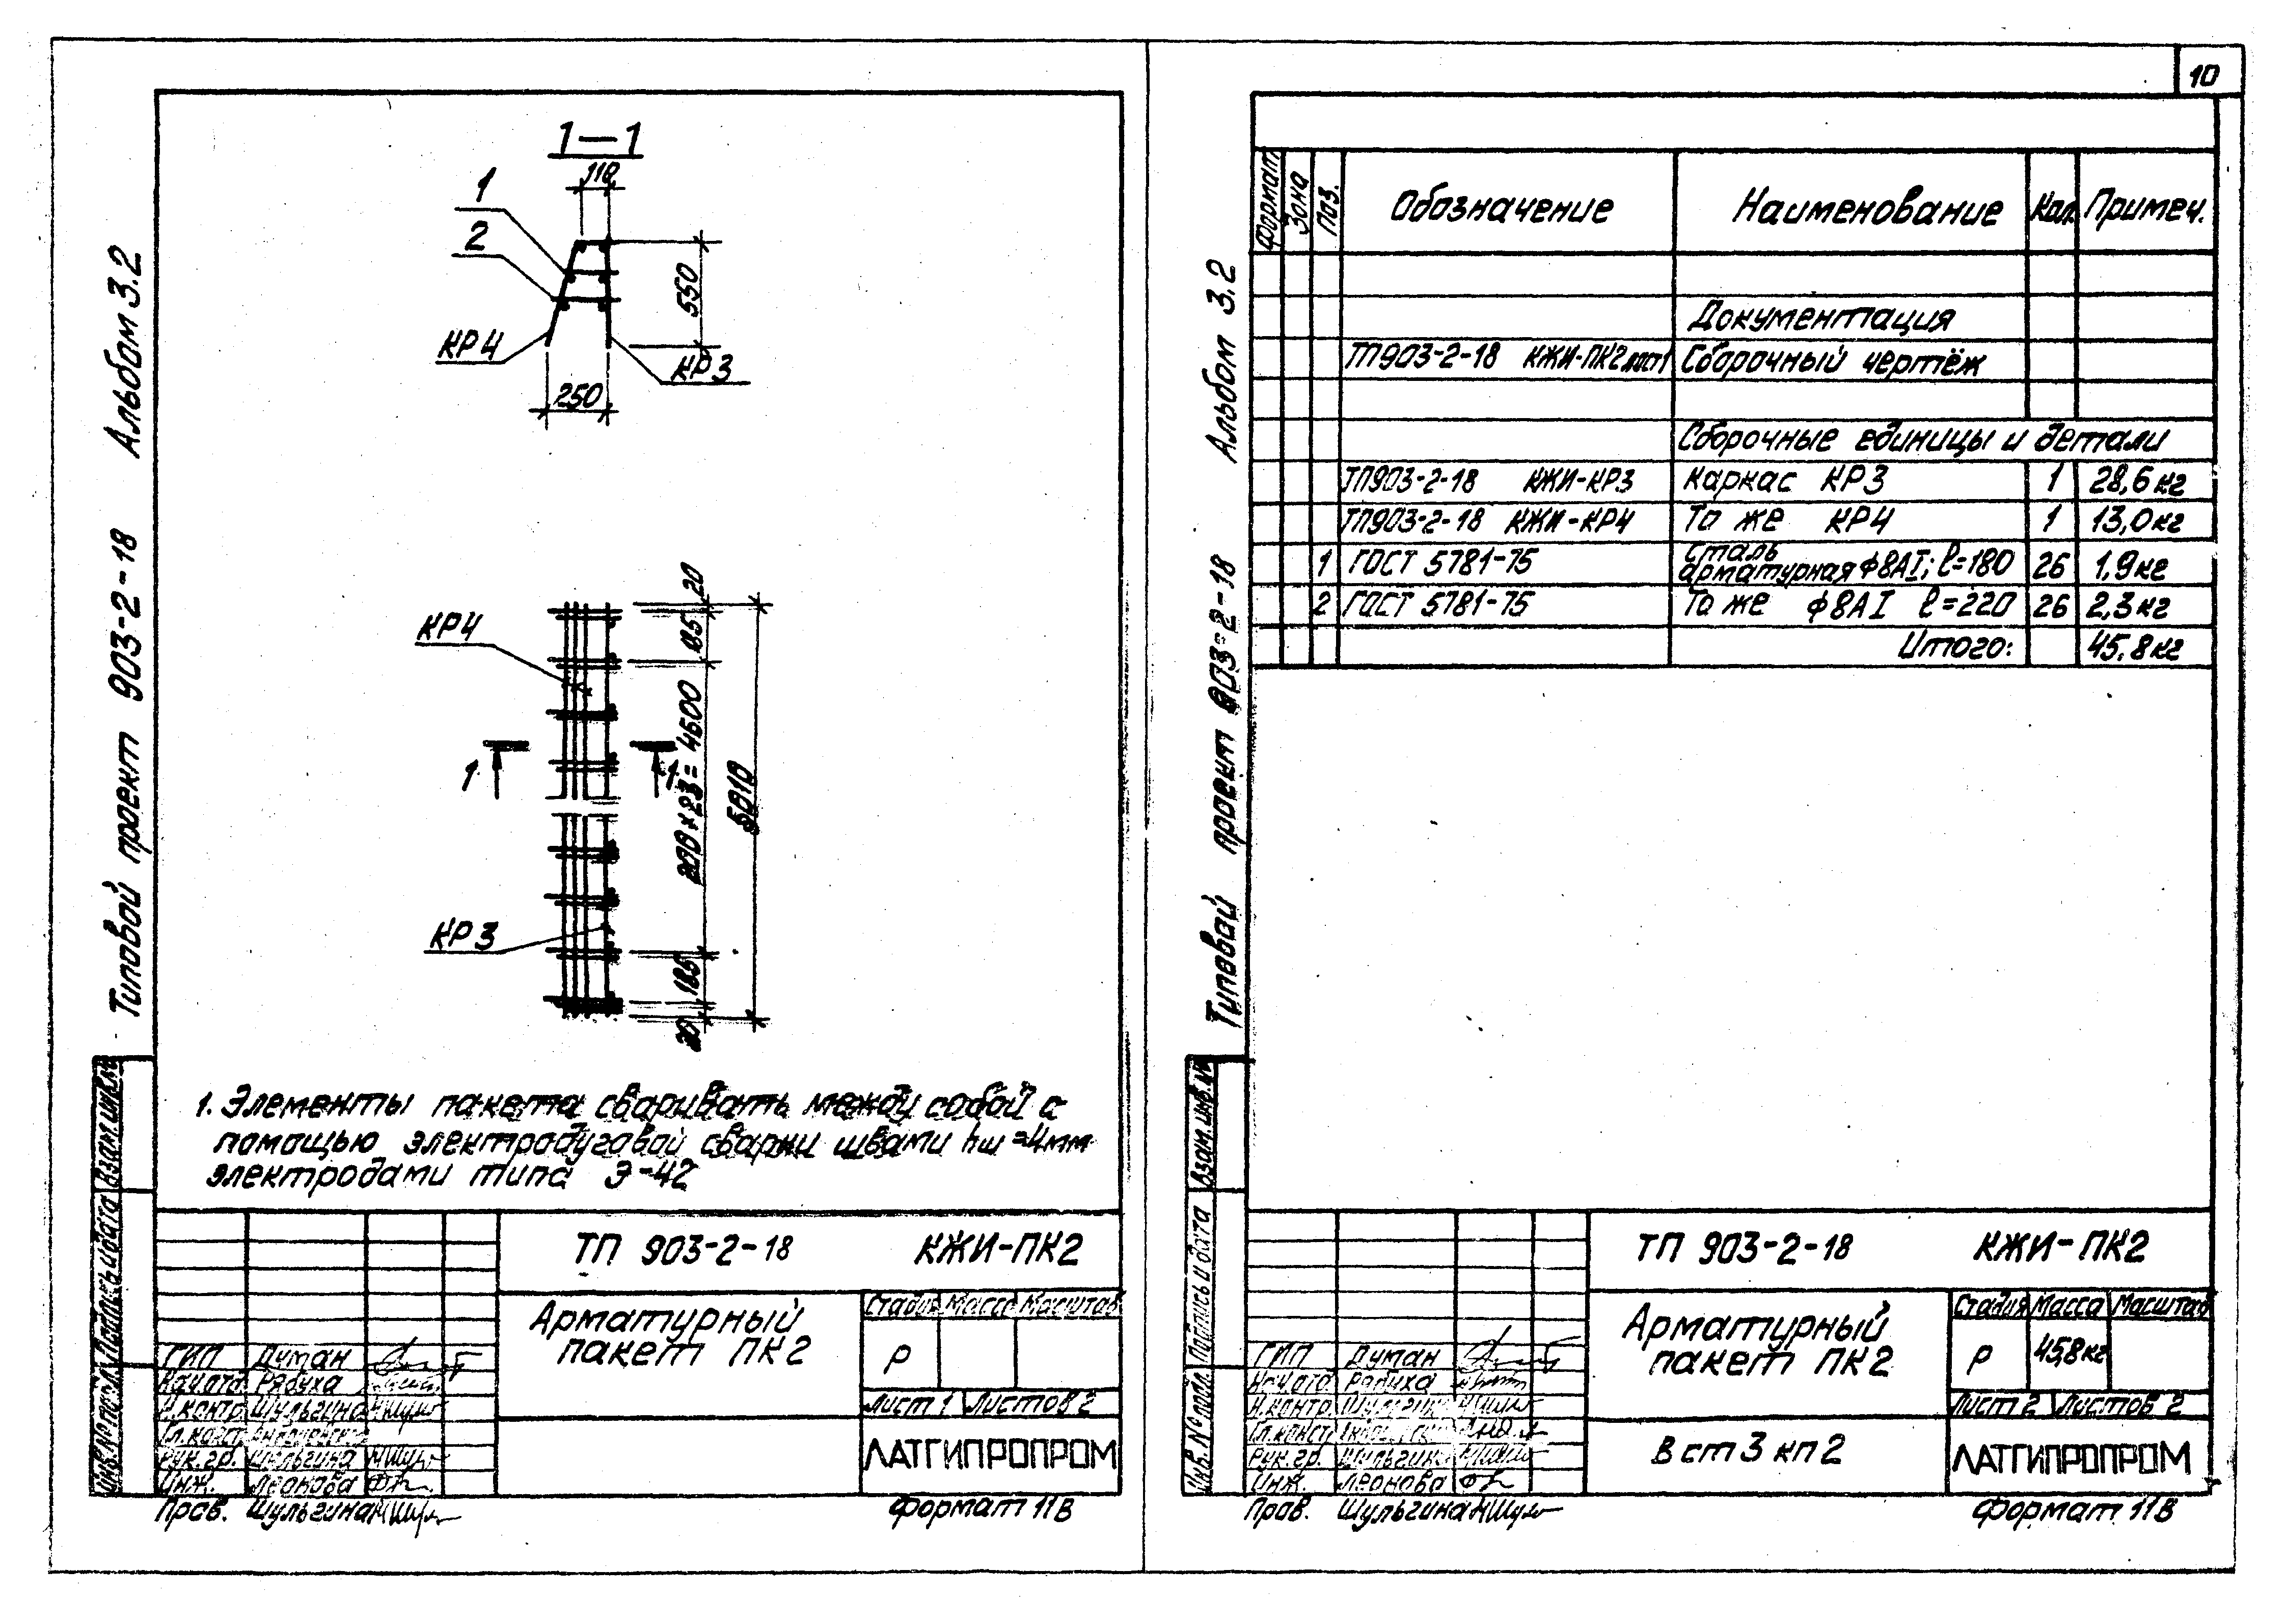 10
Типовой проект 903-2-18 Альбом 3.2
1-1
110
1
2
550
КР4
КР3
250
20
185
КР4
200×23=4600
5010
1
1
КР3
185
20
1. Элементы пакета сваривать между собой с
помощью электродуговой сварки швами hш=4мм
электродами типа Э-42
Взам.инв.№
Подпись и дата
Инв.№ подл.
ТП 903-2-18 КЖИ-ПК2
Арматурный
пакет ПК2
Стадия Масса Масштаб
Р
Лист 1 Листов 2
ЛАТГИПРОПРОМ
ГИП Думан
Нач.отд. Рябуха
Н.контр. Шульгина
Гл.конст.
Рук.гр. Шульгина
Инж. Леонова
Пров. Шульгина
Формат 11В
Типовой проект 903-2-18 Альбом 3.2
Формат Зона Поз. Обозначение Наименование Кол. Примеч.
Документация
ТП903-2-18 КЖИ-ПК2 лист1 Сборочный чертёж
Сборочные единицы и детали
ТП903-2-18 КЖИ-КР3 Каркас КР3 1 28,6кг
ТП903-2-18 КЖИ-КР4 То же КР4 1 13,0кг
1 ГОСТ 5781-75 Сталь арматурная ф8АI; ℓ=180 26 1,9кг
2 ГОСТ 5781-75 То же ф8АI ℓ=220 26 2,3кг
Итого: 45,8кг
Взам.инв.№
Подпись и дата
Инв.№ подл.
ТП 903-2-18 КЖИ-ПК2
Арматурный
пакет ПК2
Стадия Масса Масштаб
Р 45,8кг
Лист 2 Листов 2
В ст 3 кп 2
ЛАТГИПРОПРОМ
ГИП Думан
Нач.отд. Рябуха
Н.контр. Шульгина
Гл.конст.
Рук.гр. Шульгина
Инж. Леонова
Пров. Шульгина
Формат 11В